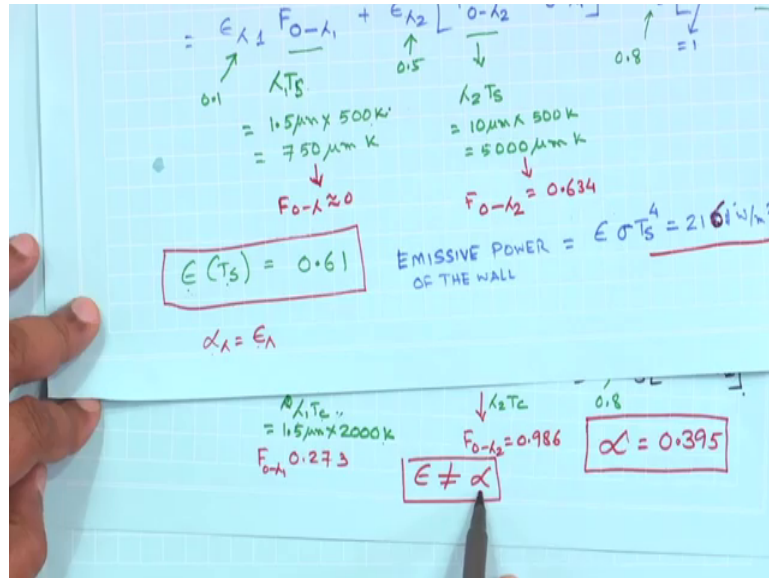 = ϵλ1 F0-λ1 + ϵλ2 [ F0-λ2
0.1
0.5
0.8
=1
λ1Ts
= 1.5μm x 500K
= 750 μm K
F0-λ ≈ 0
λ2Ts
= 10μm x 500K
= 5000 μm K
F0-λ2 = 0.634
ϵ (Ts) = 0.61
EMISSIVE POWER = ϵ σ Ts⁴ = 2161 W/m²
OF THE WALL
αλ = ϵλ
λ1Tc
= 1.5μm x 2000K
F0-λ1 0.273
λ2Tc
F0-λ2 = 0.986
0.8
α = 0.395
ϵ ≠ α